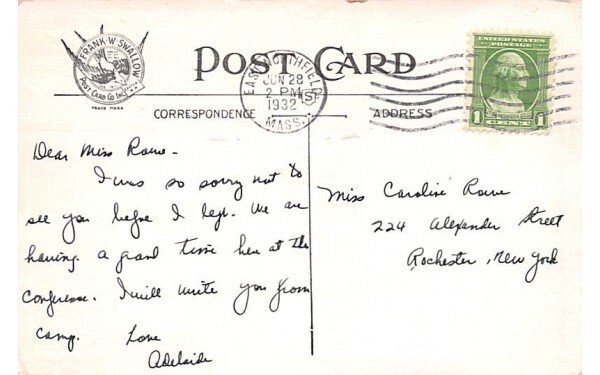 FRANK·W·SWALLOW
POST CARD CO. INC.
TRADE MARK
POST CARD
EAST NORTHFIELD
JUN 28
2 PM
1932
MASS.
UNITED STATES
POSTAGE
1 CENT 1
CORRESPONDENCE
ADDRESS
Dear Miss Rowe-
I was so sorry not to
see you before I left. We are
having a grand time here at the
Conference. I will write you from
camp. Love
Adelaide
Miss Caroline Rowe
224 Alexander Street
Rochester, New York